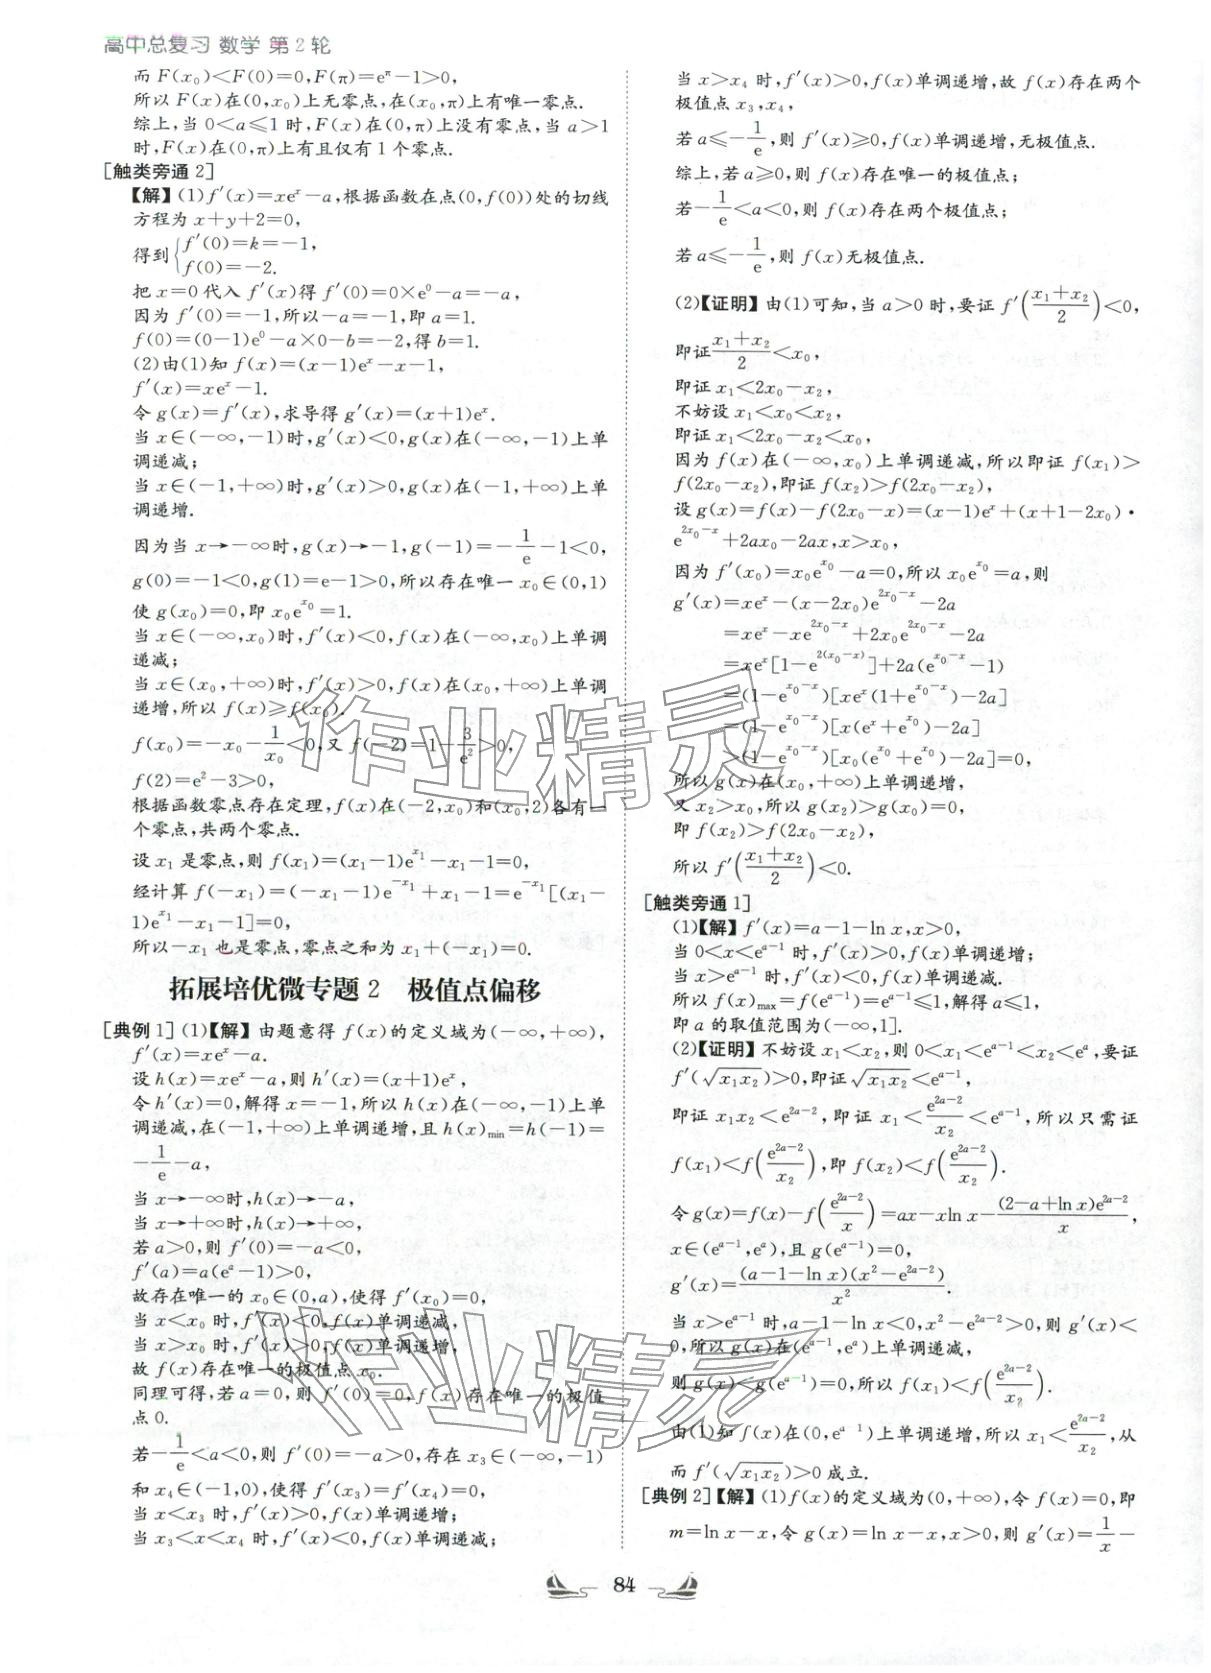 高中总复习 数学 第2轮
而 F(x₀)<F(0)=0,F(π)=e^π−1>0,
所以 F(x)在(0,x₀)上无零点,在(x₀,π)上有唯一零点.
综上,当 0<a⩽1 时,F(x)在(0,π)上没有零点,当 a>1
时,F(x)在(0,π)上有且仅有 1 个零点.
[触类旁通 2]
【解】(1)f′(x)=xe^x−a,根据函数在点(0,f(0))处的切线
方程为 x+y+2=0,
得到{f′(0)=k=−1,
f(0)=−2.
把 x=0 代入 f′(x)得 f′(0)=0×e^0−a=−a,
因为 f′(0)=−1,所以−a=−1,即 a=1.
f(0)=(0−1)e^0−a×0−b=−2,得 b=1.
(2)由(1)知 f(x)=(x−1)e^x−x−1,
f′(x)=xe^x−1.
令 g(x)=f′(x),求导得 g′(x)=(x+1)e^x.
当 x∈(−∞,−1)时,g′(x)<0,g(x)在(−∞,−1)上单
调递减;
当 x∈(−1,+∞)时,g′(x)>0,g(x)在(−1,+∞)上单
调递增.
因为当 x→−∞时,g(x)→−1,g(−1)=−1/e−1<0,
g(0)=−1<0,g(1)=e−1>0,所以存在唯一 x₀∈(0,1)
使 g(x₀)=0,即 x₀e^{x₀}=1.
当 x∈(−∞,x₀)时,f′(x)<0,f(x)在(−∞,x₀)上单调
递减;
当 x∈(x₀,+∞)时,f′(x)>0,f(x)在(x₀,+∞)上单调
递增,所以 f(x)⩾f(x₀).
f(x₀)=−x₀−1/x₀<0,又 f(−2)=1−3/e²>0,
f(2)=e²−3>0,
根据函数零点存在定理,f(x)在(−2,x₀)和(x₀,2)各有一
个零点,共两个零点.
设 x₁ 是零点,则 f(x₁)=(x₁−1)e^{x₁}−x₁−1=0,
经计算 f(−x₁)=(−x₁−1)e^{−x₁}+x₁−1=e^{−x₁}[(x₁−
1)e^{x₁}−x₁−1]=0,
所以−x₁ 也是零点,零点之和为 x₁+(−x₁)=0.
拓展培优微专题 2 极值点偏移
[典例 1] (1)【解】由题意得 f(x)的定义域为(−∞,+∞),
f′(x)=xe^x−a.
设 h(x)=xe^x−a,则 h′(x)=(x+1)e^x,
令 h′(x)=0,解得 x=−1,所以 h(x)在(−∞,−1)上单
调递减,在(−1,+∞)上单调递增,且 h(x)min=h(−1)=
−1/e−a,
当 x→−∞时,h(x)→−a,
当 x→+∞时,h(x)→+∞,
若 a>0,则 f′(0)=−a<0,
f′(a)=a(e^a−1)>0,
故存在唯一的 x₀∈(0,a),使得 f′(x₀)=0,
当 x<x₀ 时,f′(x)<0,f(x)单调递减,
当 x>x₀ 时,f′(x)>0,f(x)单调递增,
故 f(x)存在唯一的极值点 x₀.
同理可得,若 a=0,则 f′(0)=0,f(x)存在唯一的极值
点 0.
若−1/e<a<0,则 f′(0)=−a>0,存在 x₃∈(−∞,−1)
和 x₄∈(−1,0),使得 f′(x₃)=f′(x₄)=0,
当 x<x₃ 时,f′(x)>0,f(x)单调递增;
当 x₃<x<x₄ 时,f′(x)<0,f(x)单调递减;
当 x>x₄ 时,f′(x)>0,f(x)单调递增,故 f(x)存在两个
极值点 x₃,x₄,
若 a⩽−1/e,则 f′(x)⩾0,f(x)单调递增,无极值点.
综上,若 a⩾0,则 f(x)存在唯一的极值点;
若−1/e<a<0,则 f(x)存在两个极值点;
若 a⩽−1/e,则 f(x)无极值点.
(2)【证明】由(1)可知,当 a>0 时,要证 f′((x₁+x₂)/2)<0,
即证(x₁+x₂)/2<x₀,
即证 x₁<2x₀−x₂,
不妨设 x₁<x₀<x₂,
即证 x₁<2x₀−x₂<x₀,
因为 f(x)在(−∞,x₀)上单调递减,所以即证 f(x₁)>
f(2x₀−x₂),即证 f(x₂)>f(2x₀−x₂),
设 g(x)=f(x)−f(2x₀−x)=(x−1)e^x+(x+1−2x₀)·
e^{2x₀−x}+2ax₀−2ax,x>x₀,
因为 f′(x₀)=x₀e^{x₀}−a=0,所以 x₀e^{x₀}=a,则
g′(x)=xe^x−(x−2x₀)e^{2x₀−x}−2a
=xe^x−xe^{2x₀−x}+2x₀e^{2x₀−x}−2a
=xe^x[1−e^{2(x₀−x)}]+2a(e^{x₀−x}−1)
=(1−e^{x₀−x})[xe^x(1+e^{x₀−x})−2a]
=(1−e^{x₀−x})[x(e^x+e^{x₀})−2a]
>(1−e^{x₀−x})[x₀(e^{x₀}+e^{x₀})−2a]=0,
所以 g(x)在(x₀,+∞)上单调递增,
又 x₂>x₀,所以 g(x₂)>g(x₀)=0,
即 f(x₂)>f(2x₀−x₂),
所以 f′((x₁+x₂)/2)<0.
[触类旁通 1]
(1)【解】f′(x)=a−1−ln x,x>0,
当 0<x<e^{a−1} 时,f′(x)>0,f(x)单调递增;
当 x>e^{a−1} 时,f′(x)<0,f(x)单调递减.
所以 f(x)max=f(e^{a−1})=e^{a−1}⩽1,解得 a⩽1,
即 a 的取值范围为(−∞,1].
(2)【证明】不妨设 x₁<x₂,则 0<x₁<e^{a−1}<x₂<e^a,要证
f′(√(x₁x₂))>0,即证√(x₁x₂)<e^{a−1},
即证 x₁x₂<e^{2a−2},即证 x₁<e^{2a−2}/x₂<e^{a−1},所以只需证
f(x₁)<f(e^{2a−2}/x₂),即 f(x₂)<f(e^{2a−2}/x₂).
令 g(x)=f(x)−f(e^{2a−2}/x)=ax−xln x−(2−a+ln x)e^{2a−2}/x,
x∈(e^{a−1},e^a),且 g(e^{a−1})=0,
g′(x)=(a−1−ln x)(x²−e^{2a−2})/x².
当 x>e^{a−1} 时,a−1−ln x<0,x²−e^{2a−2}>0,则 g′(x)<
0,所以 g(x)在(e^{a−1},e^a)上单调递减,
则 g(x)<g(e^{a−1})=0,所以 f(x₁)<f(e^{2a−2}/x₂).
由(1)知 f(x)在(0,e^{a−1})上单调递增,所以 x₁<e^{2a−2}/x₂,从
而 f′(√(x₁x₂))>0 成立.
[典例 2]【解】(1)f(x)的定义域为(0,+∞),令 f(x)=0,即
m=ln x−x,令 g(x)=ln x−x,x>0,则 g′(x)=1/x−
84
作业精灵
作业精灵